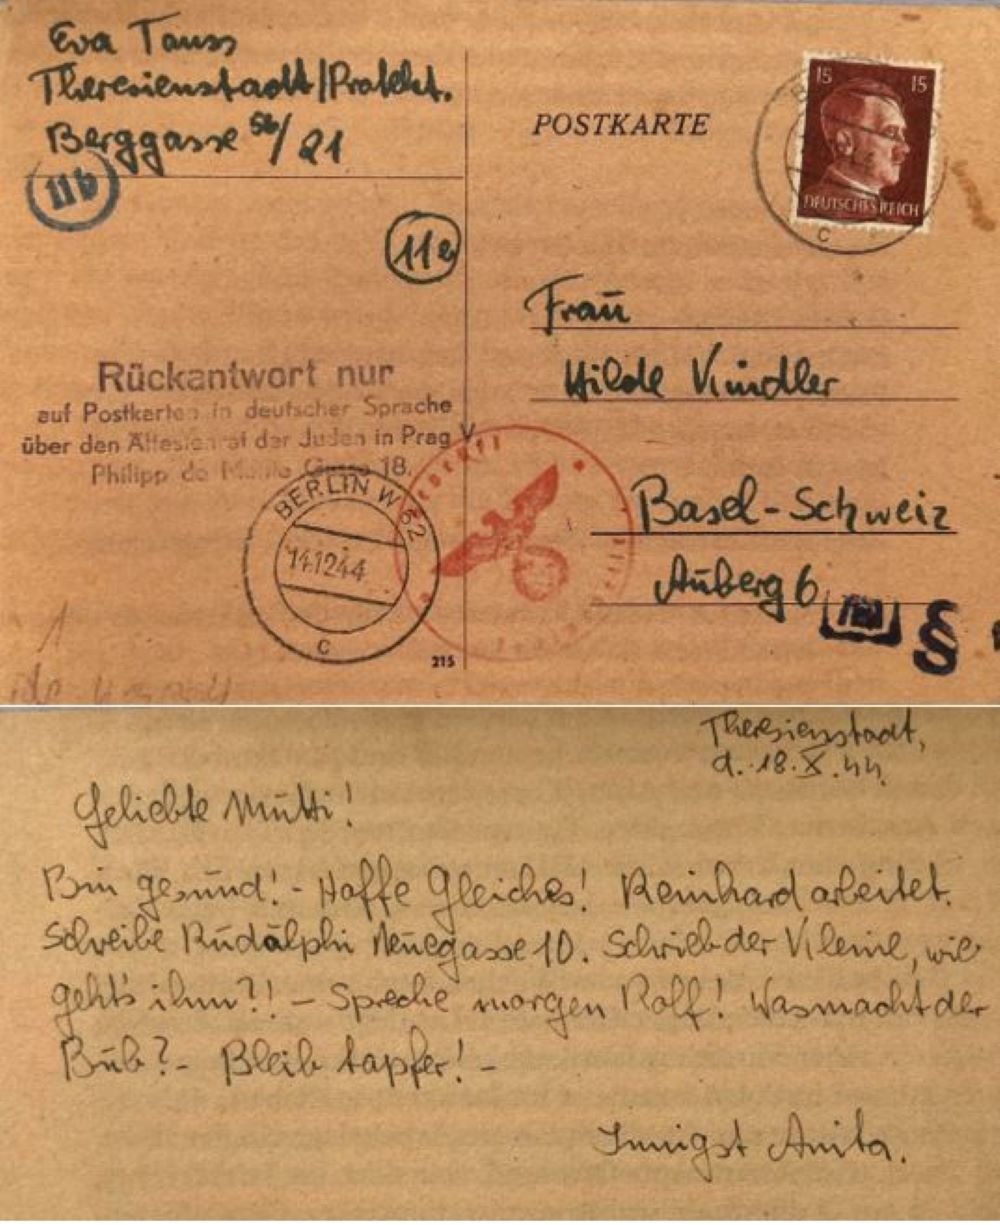 Eva Tauss
Theresienstadt/Protekt.
Berggasse 5b/21
11b
11a
POSTKARTE
15 15
DEUTSCHES REICH
C
Frau
Hilde Kindler
Basel-Schweiz
Auberg 6
Rückantwort nur
auf Postkarten in deutscher Sprache
über den Ältestenrat der Juden in Prag V
Philipp de Gasse 18.
BERLIN W 62
14.12.44
C
215
§
Theresienstadt,
d. 18.X.44.
Geliebte Mutti!
Bin gesund! - Hoffe Gleiches! Reinhard arbeitet.
Schreibe Rudolphi Neuegasse 10. Schrieb der Kleine, wie
geht's ihm?! - Spreche morgen Rolf! Was macht der
Bub? - Bleib tapfer! -
Innigst Anita.